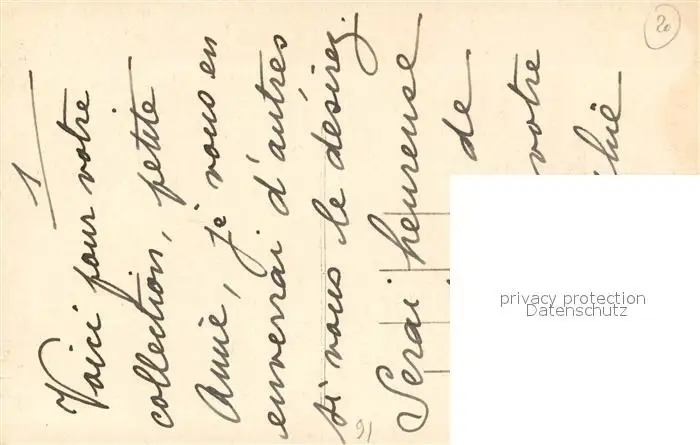 1
Voici pour votre
collection, petite
Amie, je vous en
enverrai d'autres
si vous le désirez.
Serai heureuse
de
votre
20
91
privacy protection
Datenschutz